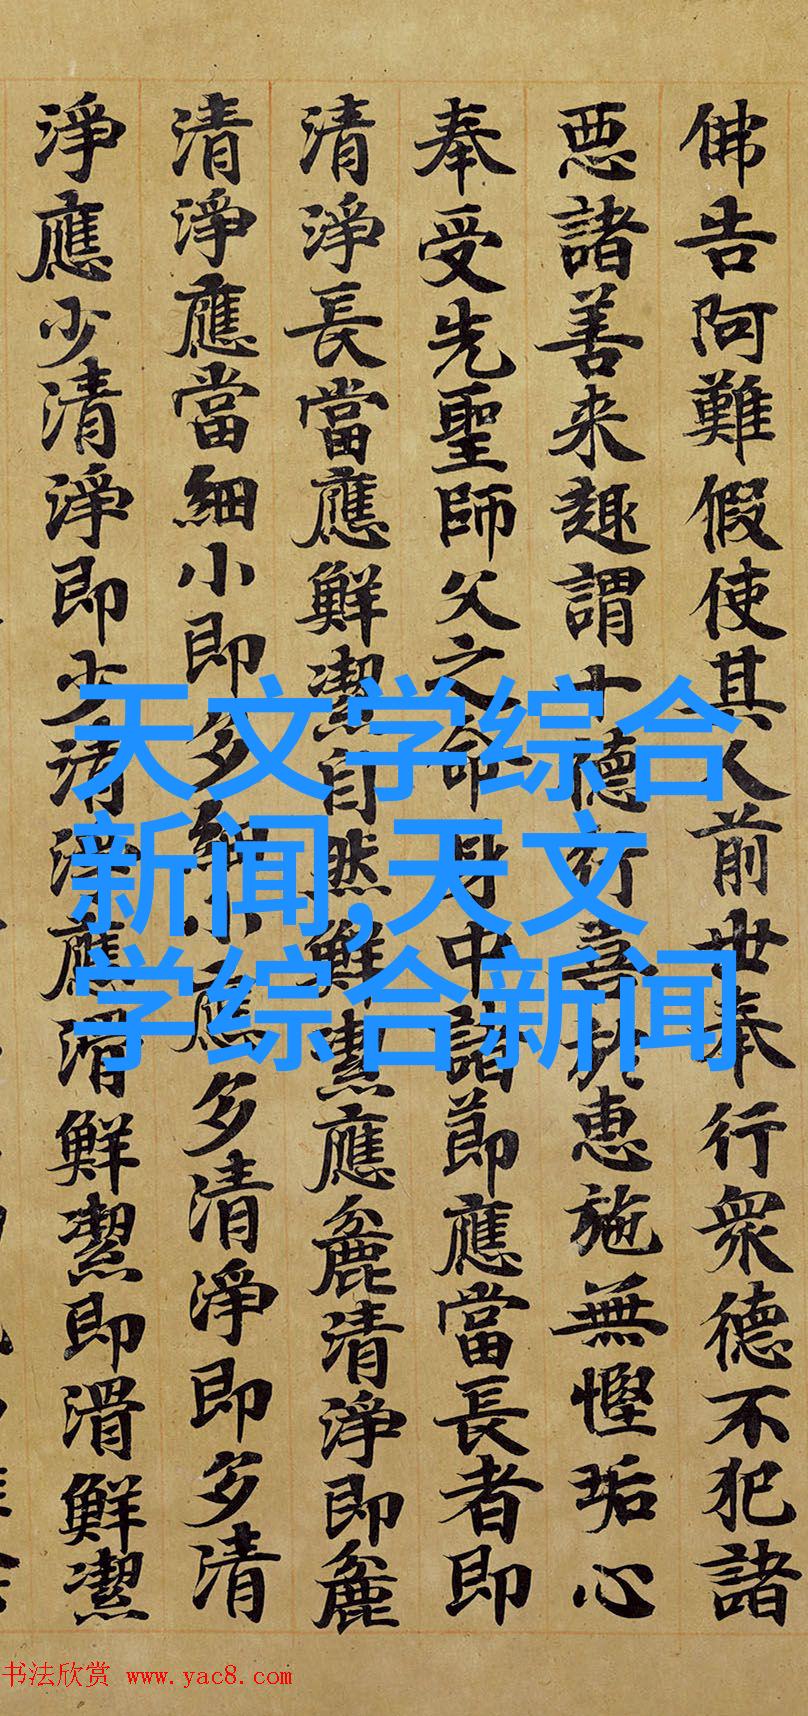 佛告阿難假使其人前世奉行眾德不犯諸
惡諸善来趣謂十德行喜於惠施無慳垢心
奉受先聖師父之命身中諸節應當長者即
清淨長當應鮮潔自然鮮潔應麁清淨即麁
清淨應當細小即多細小應多清淨即多清
淨應少清淨即少清淨應滑鮮潔即滑鮮潔
天文学综合
新闻,天文
学综合新闻
书法欣赏 www.yac8.com